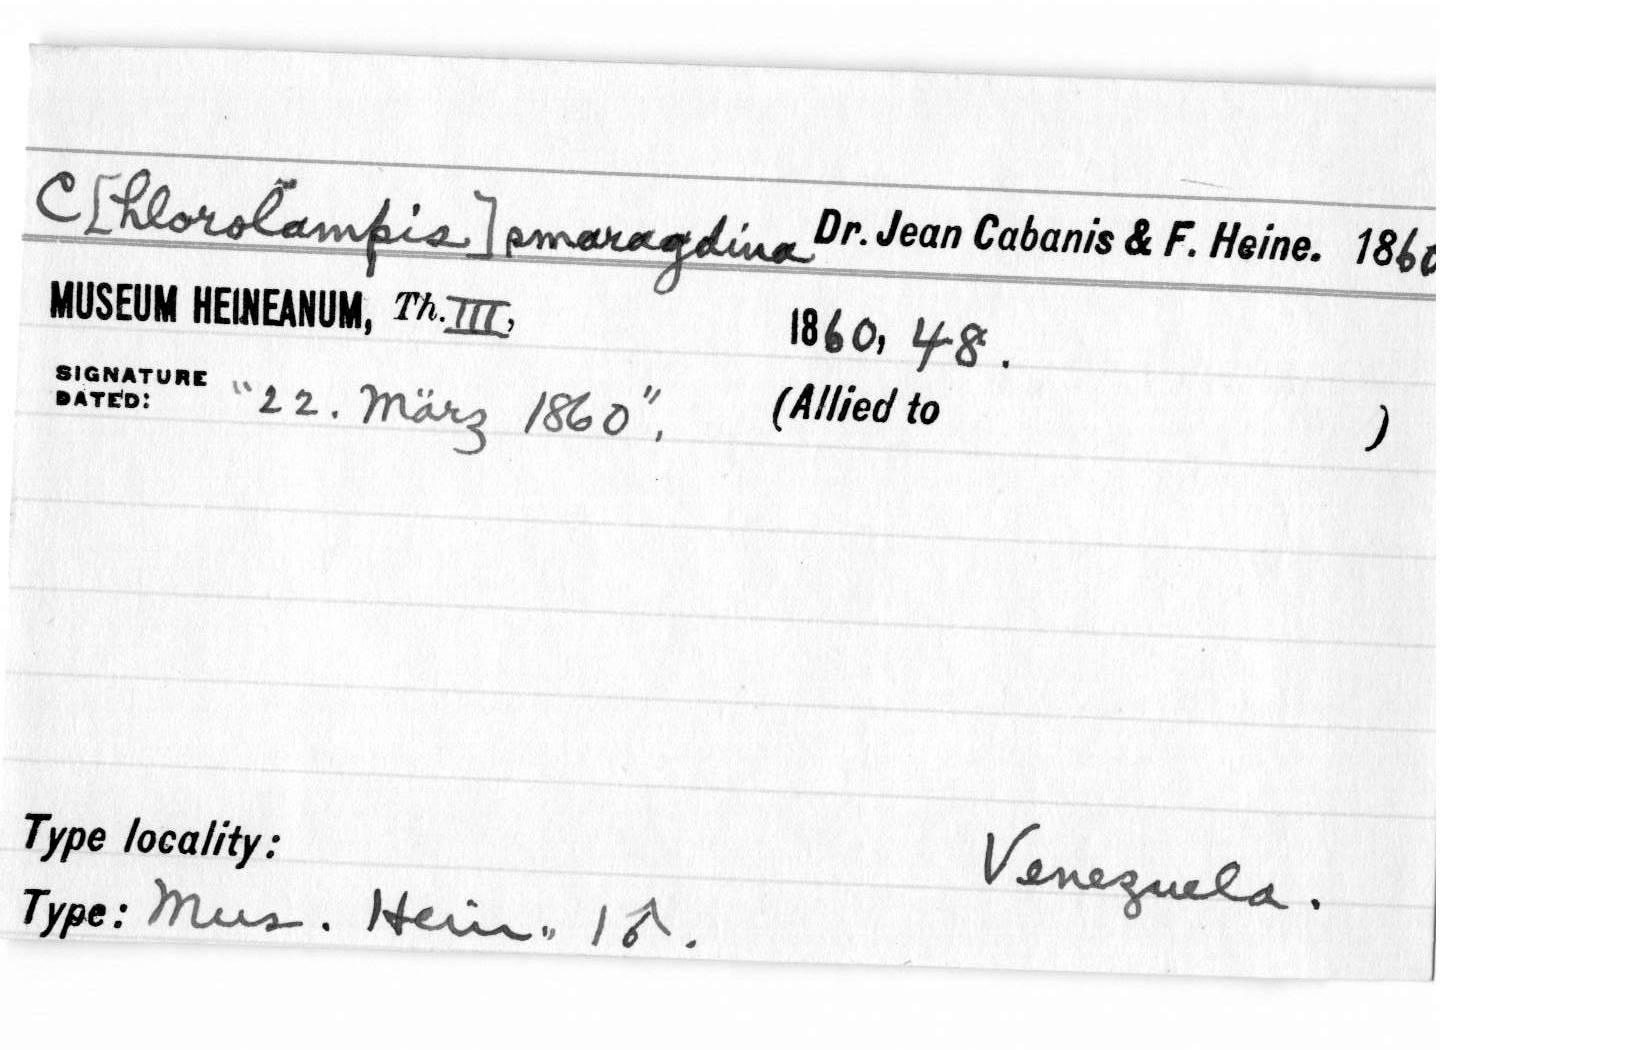 C[hlorolampis] smaragdina Dr. Jean Cabanis & F. Heine. 1860
MUSEUM HEINEANUM, Th. III, 1860, 48.
SIGNATURE DATED: "22. März 1860", (Allied to )
Type locality: Venezuela.
Type: Mus. Hein., 1 ♂.